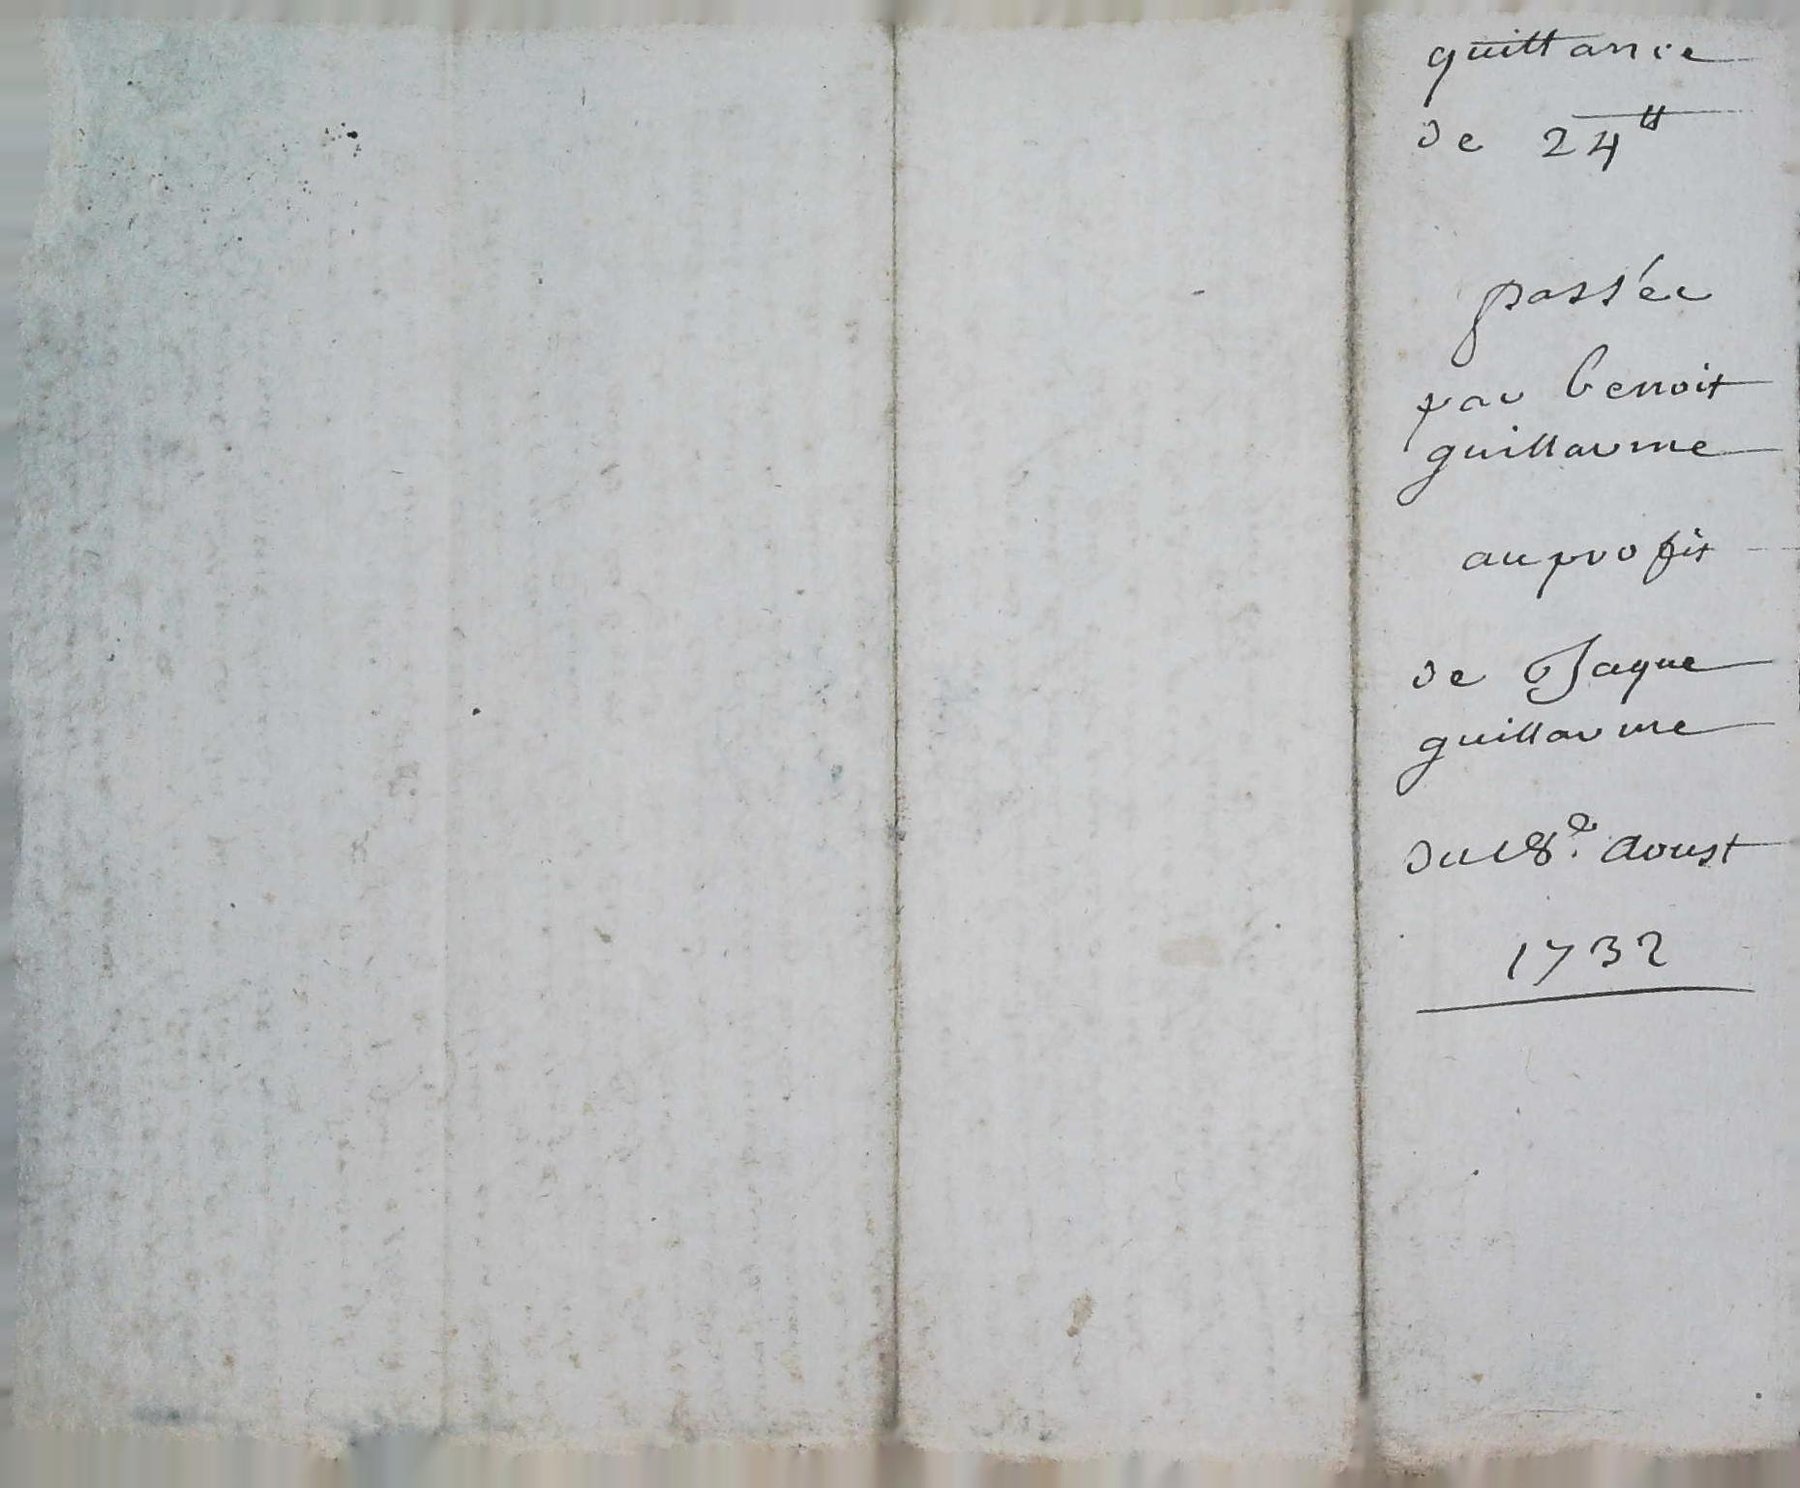 quittance
de 24tt
passée
par benoit
guillaume
au profit
de Jaque
guillaume
du 18e. Aoust
1732